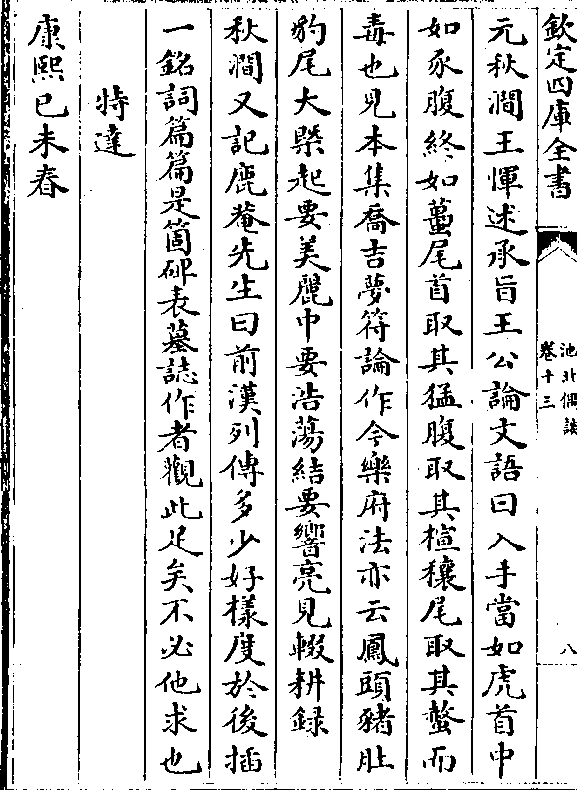 欽定四庫全書
池北偶談
卷十三
八
元秋澗王惲述承旨王公論文語曰入手當如虎首中
如豕腹終如蠆尾首取其猛腹取其楦穰尾取其螫而
毒也見本集喬吉夢符論作今樂府法亦云鳳頭豬肚
豹尾大槩起要美麗中要浩蕩結要響亮見輟耕録
秋澗又記鹿菴先生曰前漢列傳多少好樣度於後插
一銘詞篇篇是箇碑表墓誌作者觀此足矣不必他求也
特達
康熙已未春